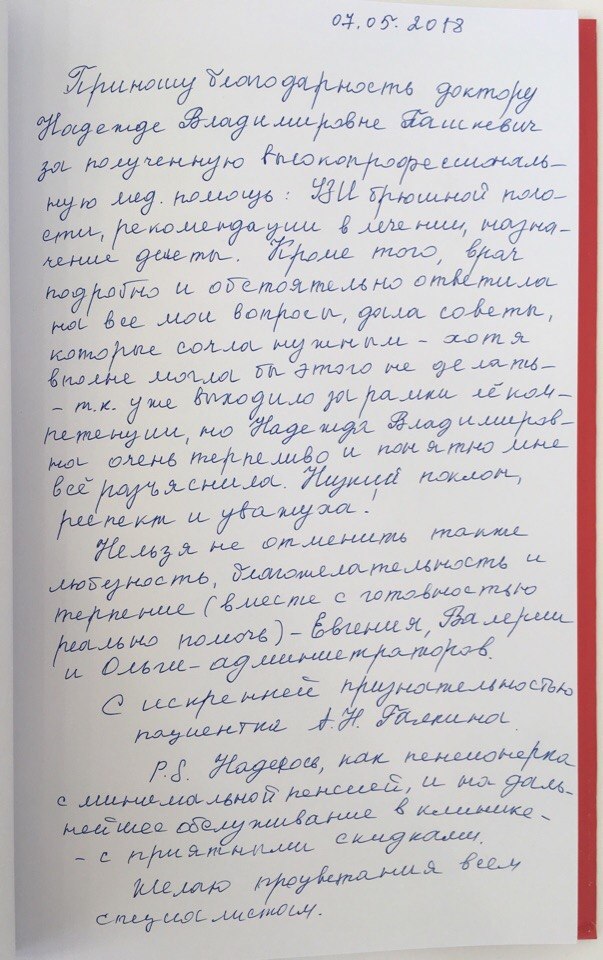 07.05.2018
Приношу благодарность доктору
Надежде Владимировне Пашкевич
за полученную высокопрофессиональ-
ную мед. помощь: УЗИ брюшной поло-
сти, рекомендации в лечении, назна-
чение диеты. Кроме того, врач
подробно и обстоятельно ответила
на все мои вопросы, дала советы,
которые сочла нужным - хотя
вполне могла бы этого не делать -
- т.к. уже выходило за рамки её ком-
петенции, но Надежда Владимиров-
на очень терпеливо и понятно мне
всё разъяснила. Низкий поклон,
респект и уважуха!
Нельзя не отменить также
любезность, благожелательность и
терпение (вместе с готовностью
реально помочь) - Евгения, Валерии
и Ольги - администраторов.
С искренней признательностью
пациентка А.Н. Галкина
P.S. Надеюсь, как пенсионерка
с минимальной пенсией, и на даль-
нейшее обслуживание в клинике -
- с приятными скидками.
Желаю процветания всем
специалистам.